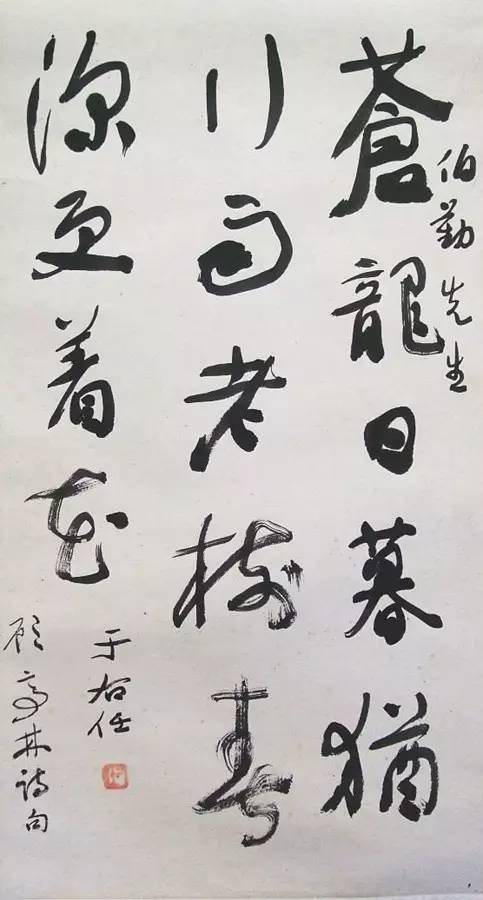 蒼龍日暮猶
伯勤先生
行雨老樹春
深更着花
于右任
顧亭林詩句